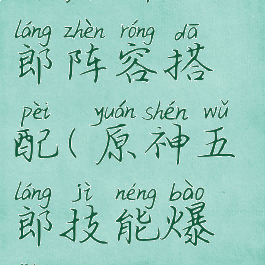 láng zhèn róng dā
郎阵容搭
pèi yuán shén wǔ
配(原神五
láng jì néng bào
郎技能爆